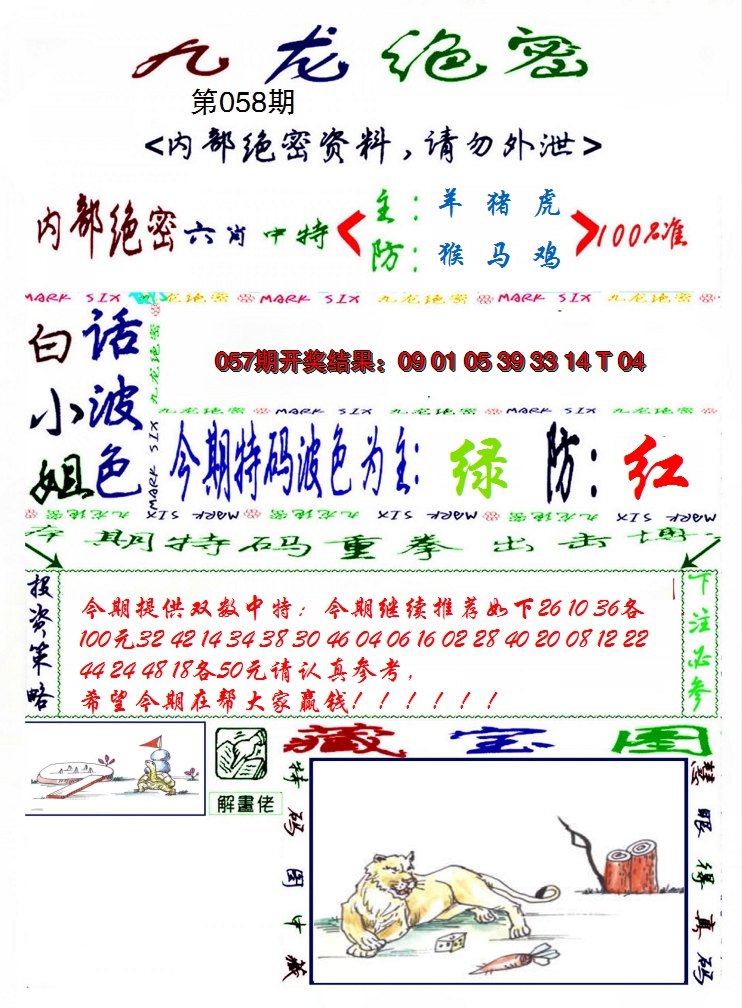 九龙绝密
第058期
<内部绝密资料，请勿外泄>
内部绝密六肖中特
主：羊 猪 虎
防：猴 马 鸡
100%准
MARK SIX 九龙绝密 MARK SIX 九龙绝密 MARK SIX 九龙绝密
白小姐
话波色
九龙绝密
MARK SIX
057期开奖结果：09 01 05 39 33 14 T 04
九龙绝密 MARK SIX 九龙绝密 MARK SIX 九龙绝密
今期特码波色为主：绿 防：红
MARK SIX 九龙绝密 MARK SIX 九龙绝密 MARK SIX 九龙绝密
本期特码重拳出击博
投资策略
今期提供双数中特；今期继续推荐如下26 10 36各
100元32 42 14 34 38 30 46 04 06 16 02 28 40 20 08 12 22
44 24 48 18各50元请认真参考，
希望今期在帮大家赢钱！！！！！！
下注必参
解畫佬
藏宝图
特码图中藏
慧眼得真码